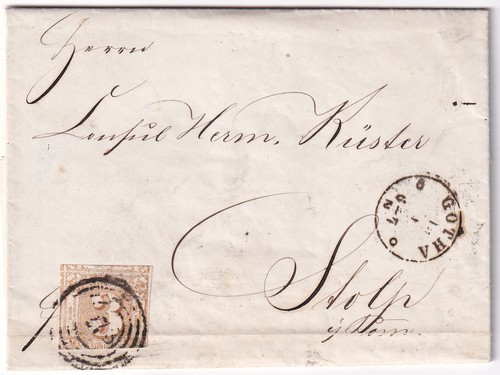 Herrn
Consul Herm. Küster
Stolp
i/ Pom.
GOTHA
3